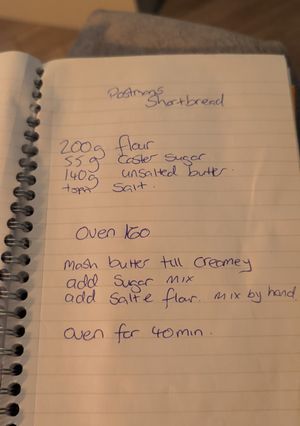 Postmans
Shortbread
200g flour
55g Caster Sugar
140g unsalted butter.
Salt.
Oven 160
Mash butter till Creamey
add Sugar Mix
add Salt & flour. Mix by hand
Oven for 40min.